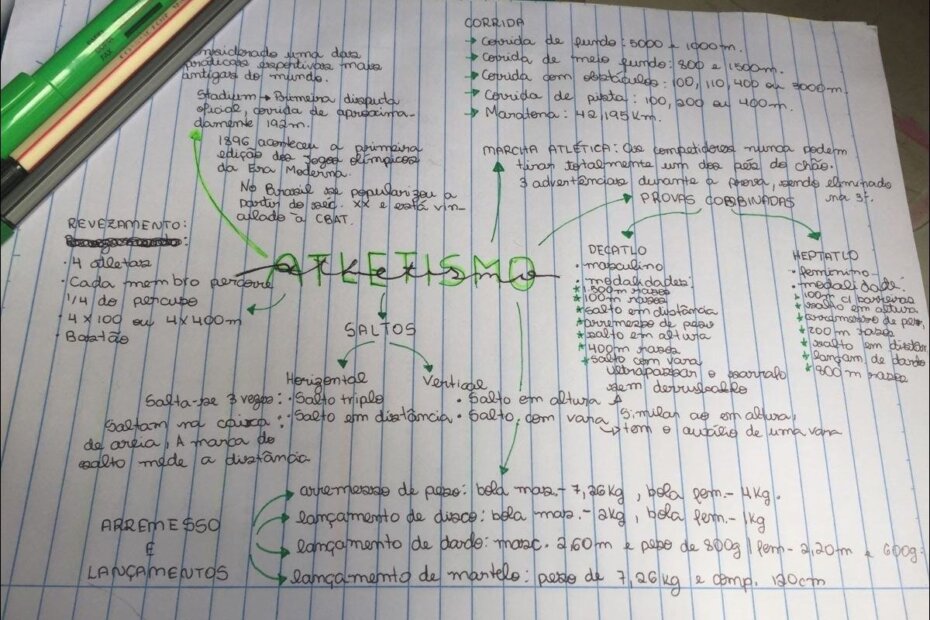 considerado uma das
práticas esportivas mais
antigas do mundo.
Stadium → Primeira disputa
oficial, corrida de aproxima-
damente 192m.
1896 aconteceu a primeira
edição dos Jogos olímpicos
da Era Moderna.
No Brasil se popularizou a
partir do séc. XX e está vin-
culado à CBAT.
CORRIDA
→ Corrida de fundo: 5000 e 1000m.
→ Corrida de meio fundo: 800 e 1500m.
→ Corrida com obstáculos: 100, 110, 400 ou 3000m.
→ Corrida de pista: 100, 200 ou 400m.
→ Maratona: 42,195Km.
MARCHA ATLÉTICA: Os competidores nunca podem
tirar totalmente um dos pés do chão.
3 advertências durante a prova, sendo eliminado
na 3ª.
PROVAS COMBINADAS
REVEZAMENTO:
· 4 atletas
· Cada membro percorre
1/4 do percurso
· 4x100 ou 4x400m
· Bastão
ATLETISMO
atletismo
DECATLO
· masculino
· modalidades:
* 1.500m rasos
* 100m rasos
* salto em distância
* arremesso de peso
* salto em altura
* 400m rasos
* salto com vara
HEPTATLO
· feminino
· modalidade:
* 100m c/ barreiras
* salto em altura
* arremesso de peso,
* 200 m rasos
* salto em distân
* lançam. de dardo
* 800 m rasos
SALTOS
Horizontal
Salta-se 3 vezes: · Salto triplo
Saltam na caixa : · Salto em distância
de areia, A marca do
salto mede a distância
Vertical
ultrapassar o sarrafo
sem derrubá-lo
· Salto em altura
· Salto com vara
Similar ao em altura,
→ tem o auxílio de uma vara
ARREMESSO
E
LANÇAMENTOS
→ arremesso de peso: bola mas. - 7,26kg, bola fem. - 4kg.
→ lançamento de disco: bola mas. - 2kg, bola fem. - 1kg
→ lançamento de dardo: masc. 2,60m e peso de 800g / fem - 2,20m e 600g.
→ lançamento de martelo: peso de 7,26kg e comp. 120cm